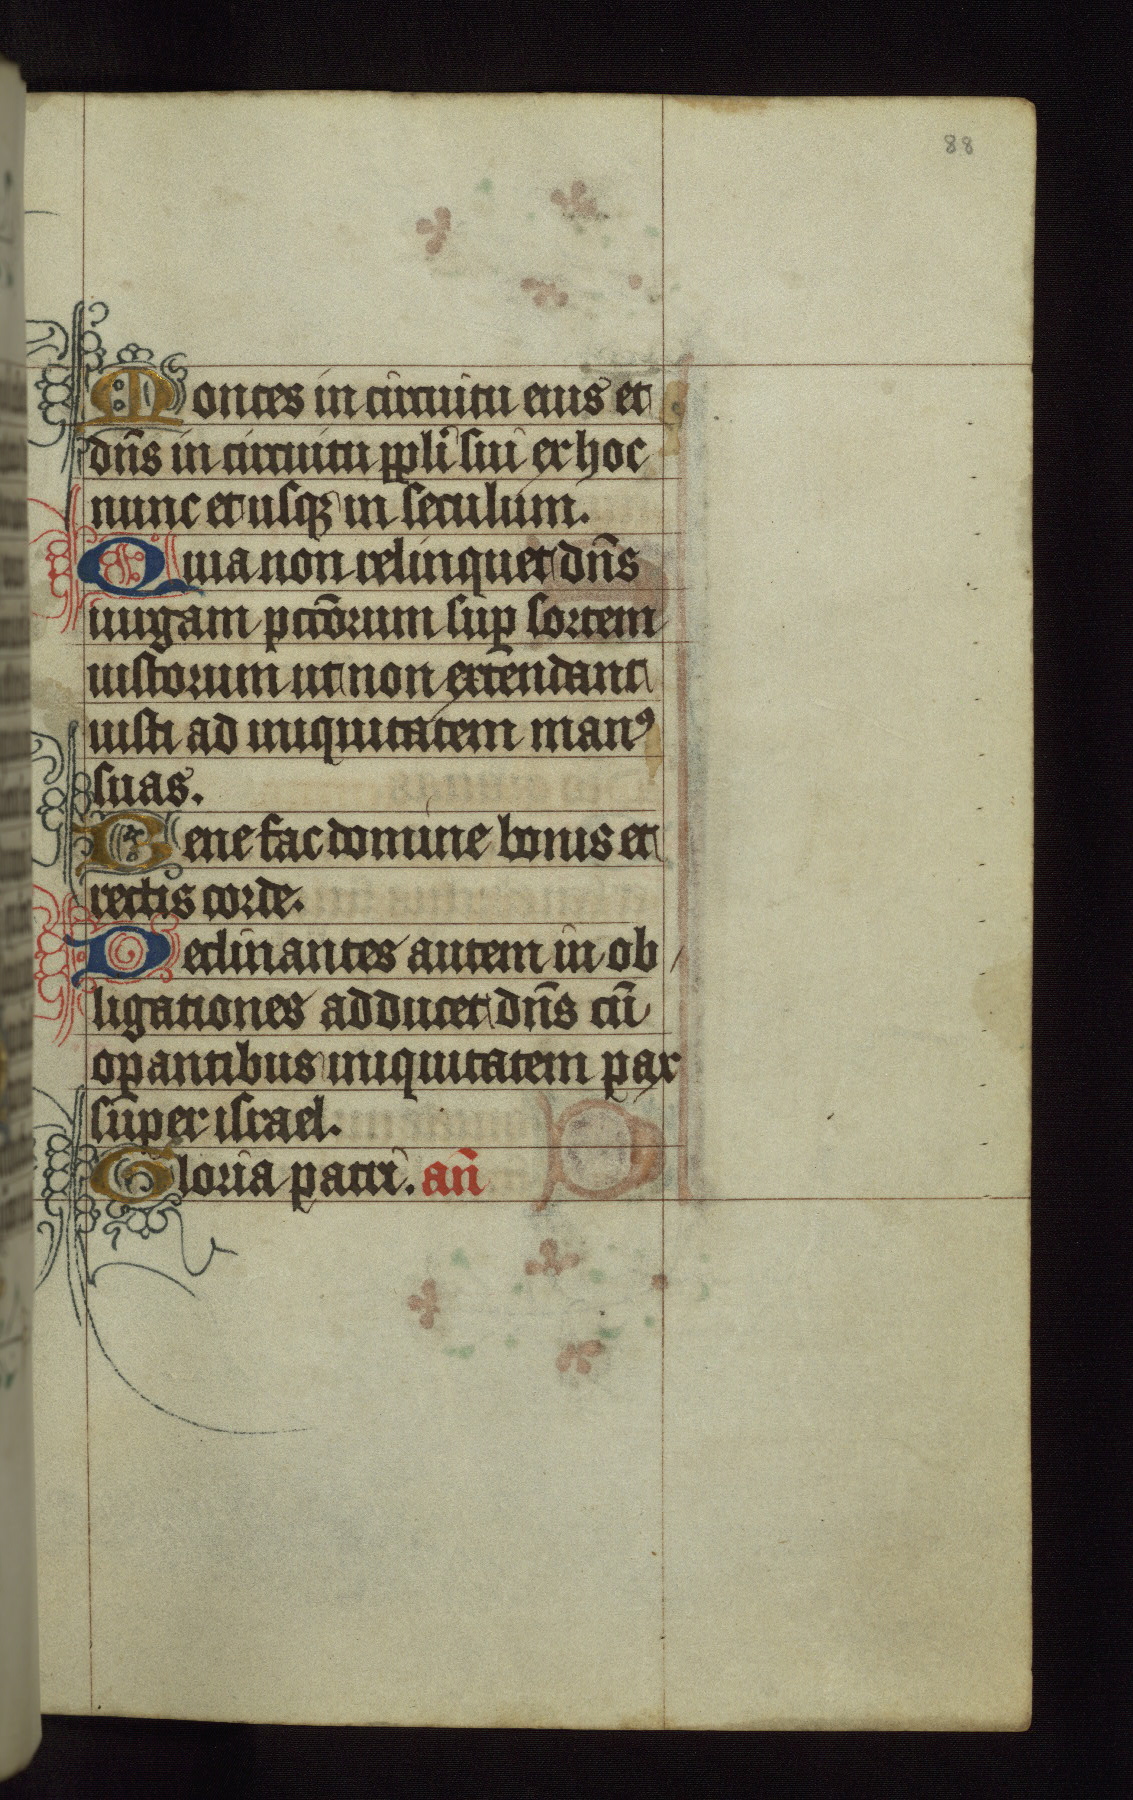 88
Montes in circuitu eius et
dn̄s in circuitu ppli sui ex hoc
nunc et usqꝫ in seculum.
Quia non relinquet dn̄s
uirgam pctōrum suꝑ sortem
iustorum ut non extendant
iusti ad iniquitatem manꝰ
suas.
Bene fac domine bonis et
rectis corde.
Declinantes autem in ob
ligationes adducet dn̄s cū
oꝑantibus iniquitatem pax
super israel.
Gloria patri. an̄